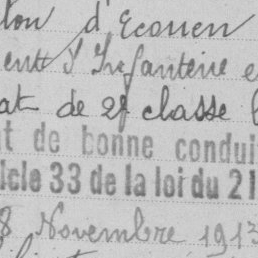 d'Ecouen
d'Infanterie e
at de 2e classe
t de bonne condui
icle 33 de la loi du 21
8 Novembre 1913